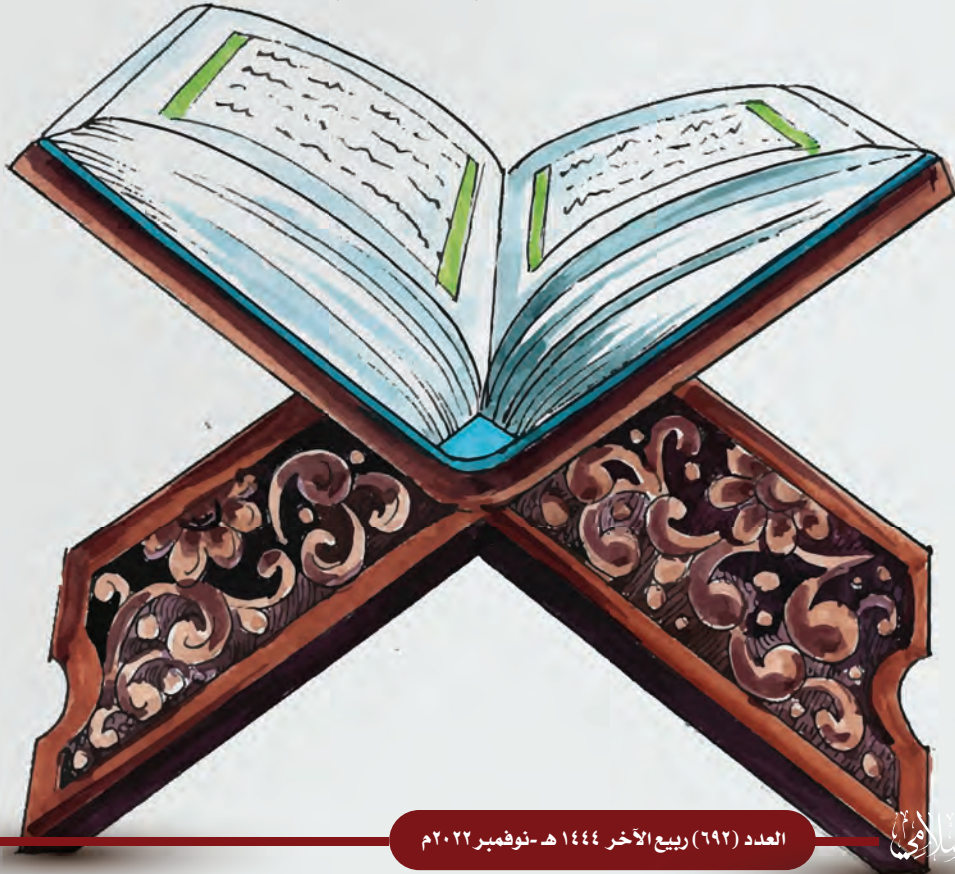 العدد (٦٩٢) ربيع الآخر ١٤٤٤ هـ - نوفمبر ٢٠٢٢م